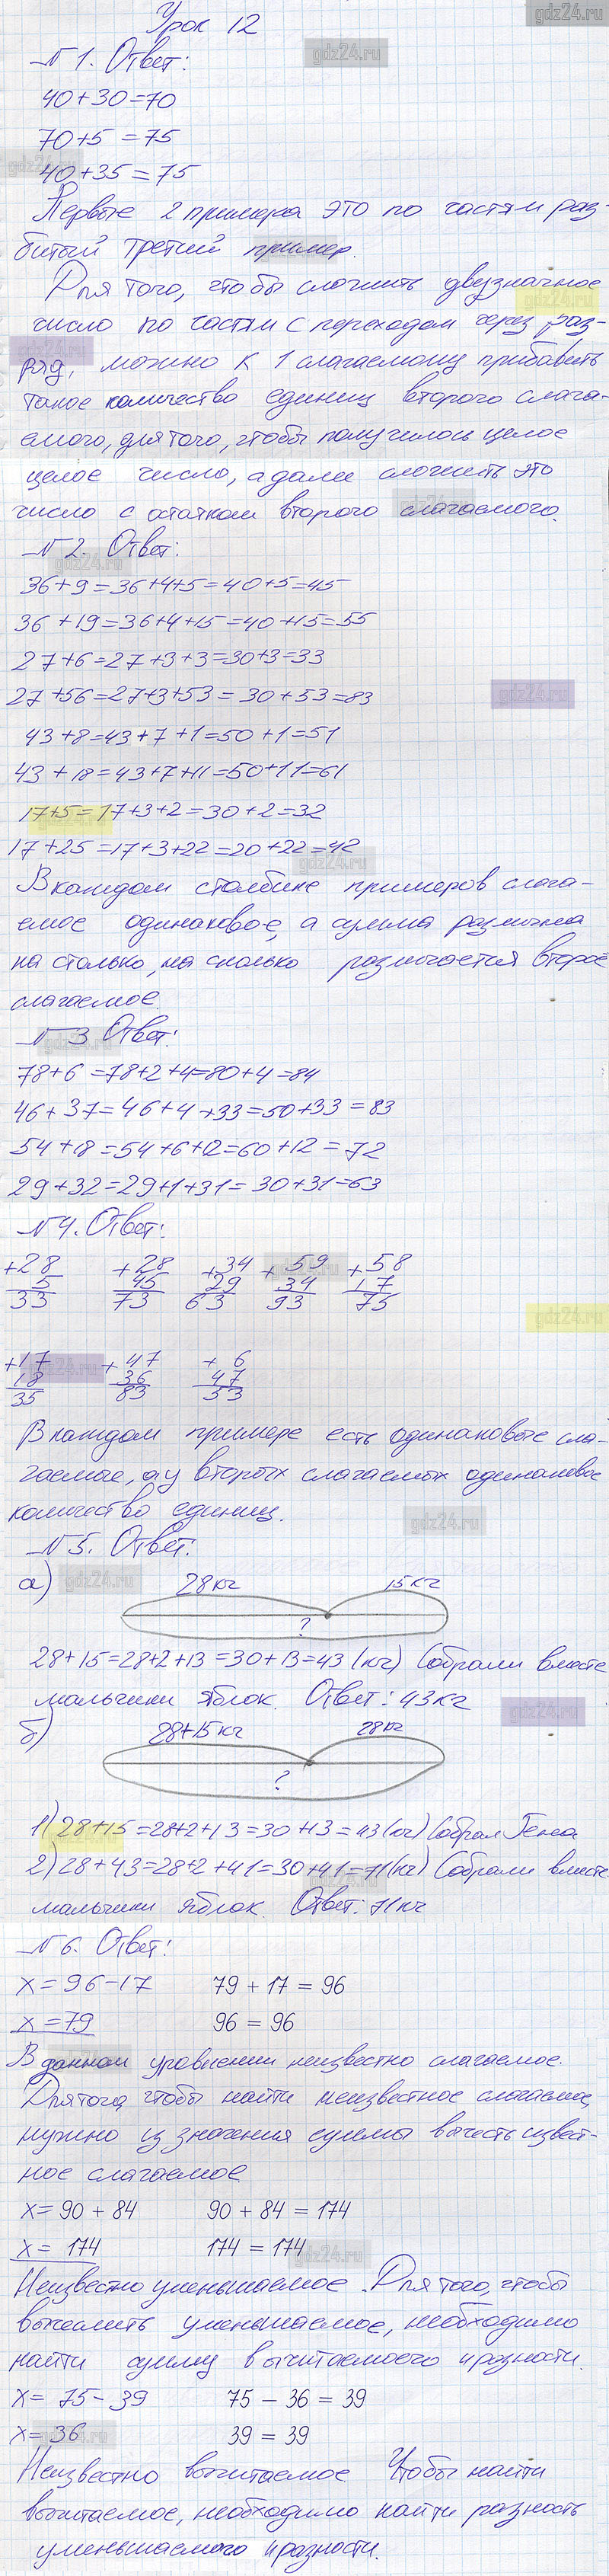 Урок 12
№1. Ответ:
40+30=70
70+5 = 75
40+35=75
Первые 2 примера это по частям раз-
битый третий пример.
Для того, чтобы сложить двузначное
число по частям с переходом через раз-
ряд, можно к 1 слагаемому прибавить
такое количество единиц второго слага-
емого, для того, чтобы получилось целое
целое число, а далее сложить это
число с остатком второго слагаемого.
№2. Ответ:
36+9=36+4+5=40+5=45
36+19=36+4+15=40+15=55
27+6=27+3+3=30+3=33
27+56=27+3+53=30+53=83
43+8=43+7+1=50+1=51
43+18=43+7+11=50+11=61
17+5=17+3+2=30+2=32
17+25=17+3+22=20+22=42
В каждом столбике примеров слага-
емое одинаковое, а сумма различна
на столько, на сколько различается второе
слагаемое.
№3 Ответ:
78+6=78+2+4=80+4=84
46+37=46+4+33=50+33=83
54+18=54+6+12=60+12=72
29+32=29+1+31=30+31=63
№4. Ответ:
+28 +28 +34 +59 +58
5 45 29 34 17
33 73 63 93 75
+17 +47 +6
18 36 47
35 83 53
В каждом примере есть одинаковые сла-
гаемые, а у вторых слагаемых одинаковое
количество единиц.
№5. Ответ:
а) 28кг 15кг
?
28+15=28+2+13=30+13=43 (кг) Собрали вместе
мальчики яблок. Ответ: 43кг
б) 28+15кг 28кг
?
1) 28+15=28+2+13=30+13=43(кг) Собрал Гена
2) 28+43=28+2+41=30+41=71(кг) Собрали вместе
мальчики яблок. Ответ: 71кг
№6. Ответ:
x=96-17 79+17=96
x=79 96=96
В данном уравнении неизвестно слагаемое.
Для того, чтобы найти неизвестное слагаемое,
нужно из значения суммы вычесть извест-
ное слагаемое
x=90+84 90+84=174
x=174 174=174
Неизвестно уменьшаемое. Для того, чтобы
вычислить уменьшаемое, необходимо
найти сумму вычитаемоего и разности.
x=75-39 75-36=39
x=36 39=39
Неизвестно вычитаемое Чтобы найти
вычитаемое, необходимо найти разность
уменьшаемого и разности.
gdz24.ru